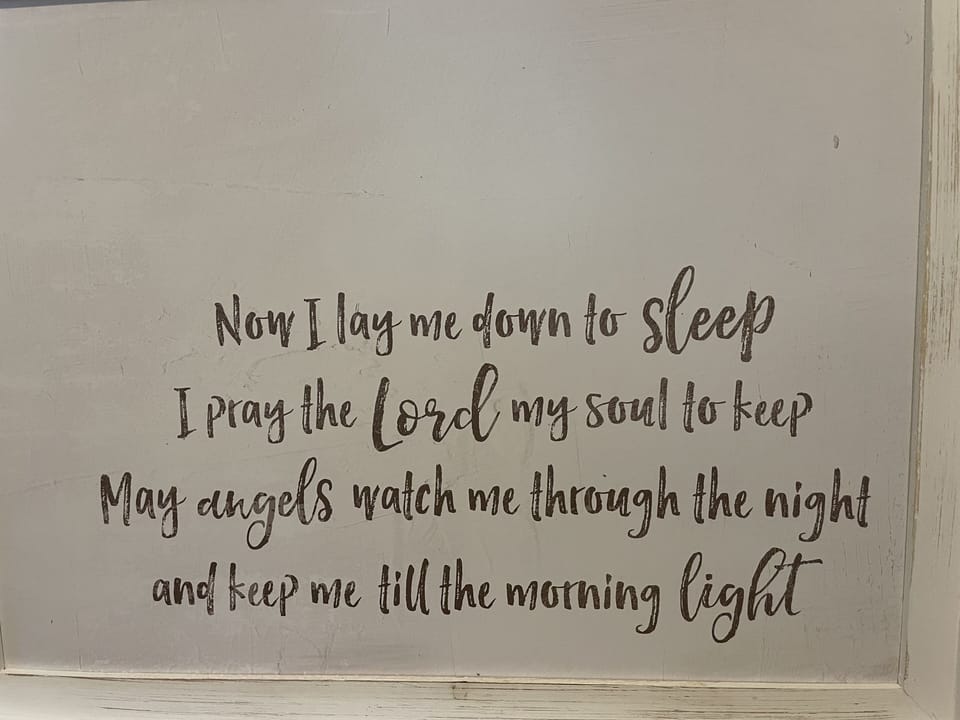 Now I lay me down to sleep
I pray the Lord my soul to keep
May angels watch me through the night
and keep me till the morning light